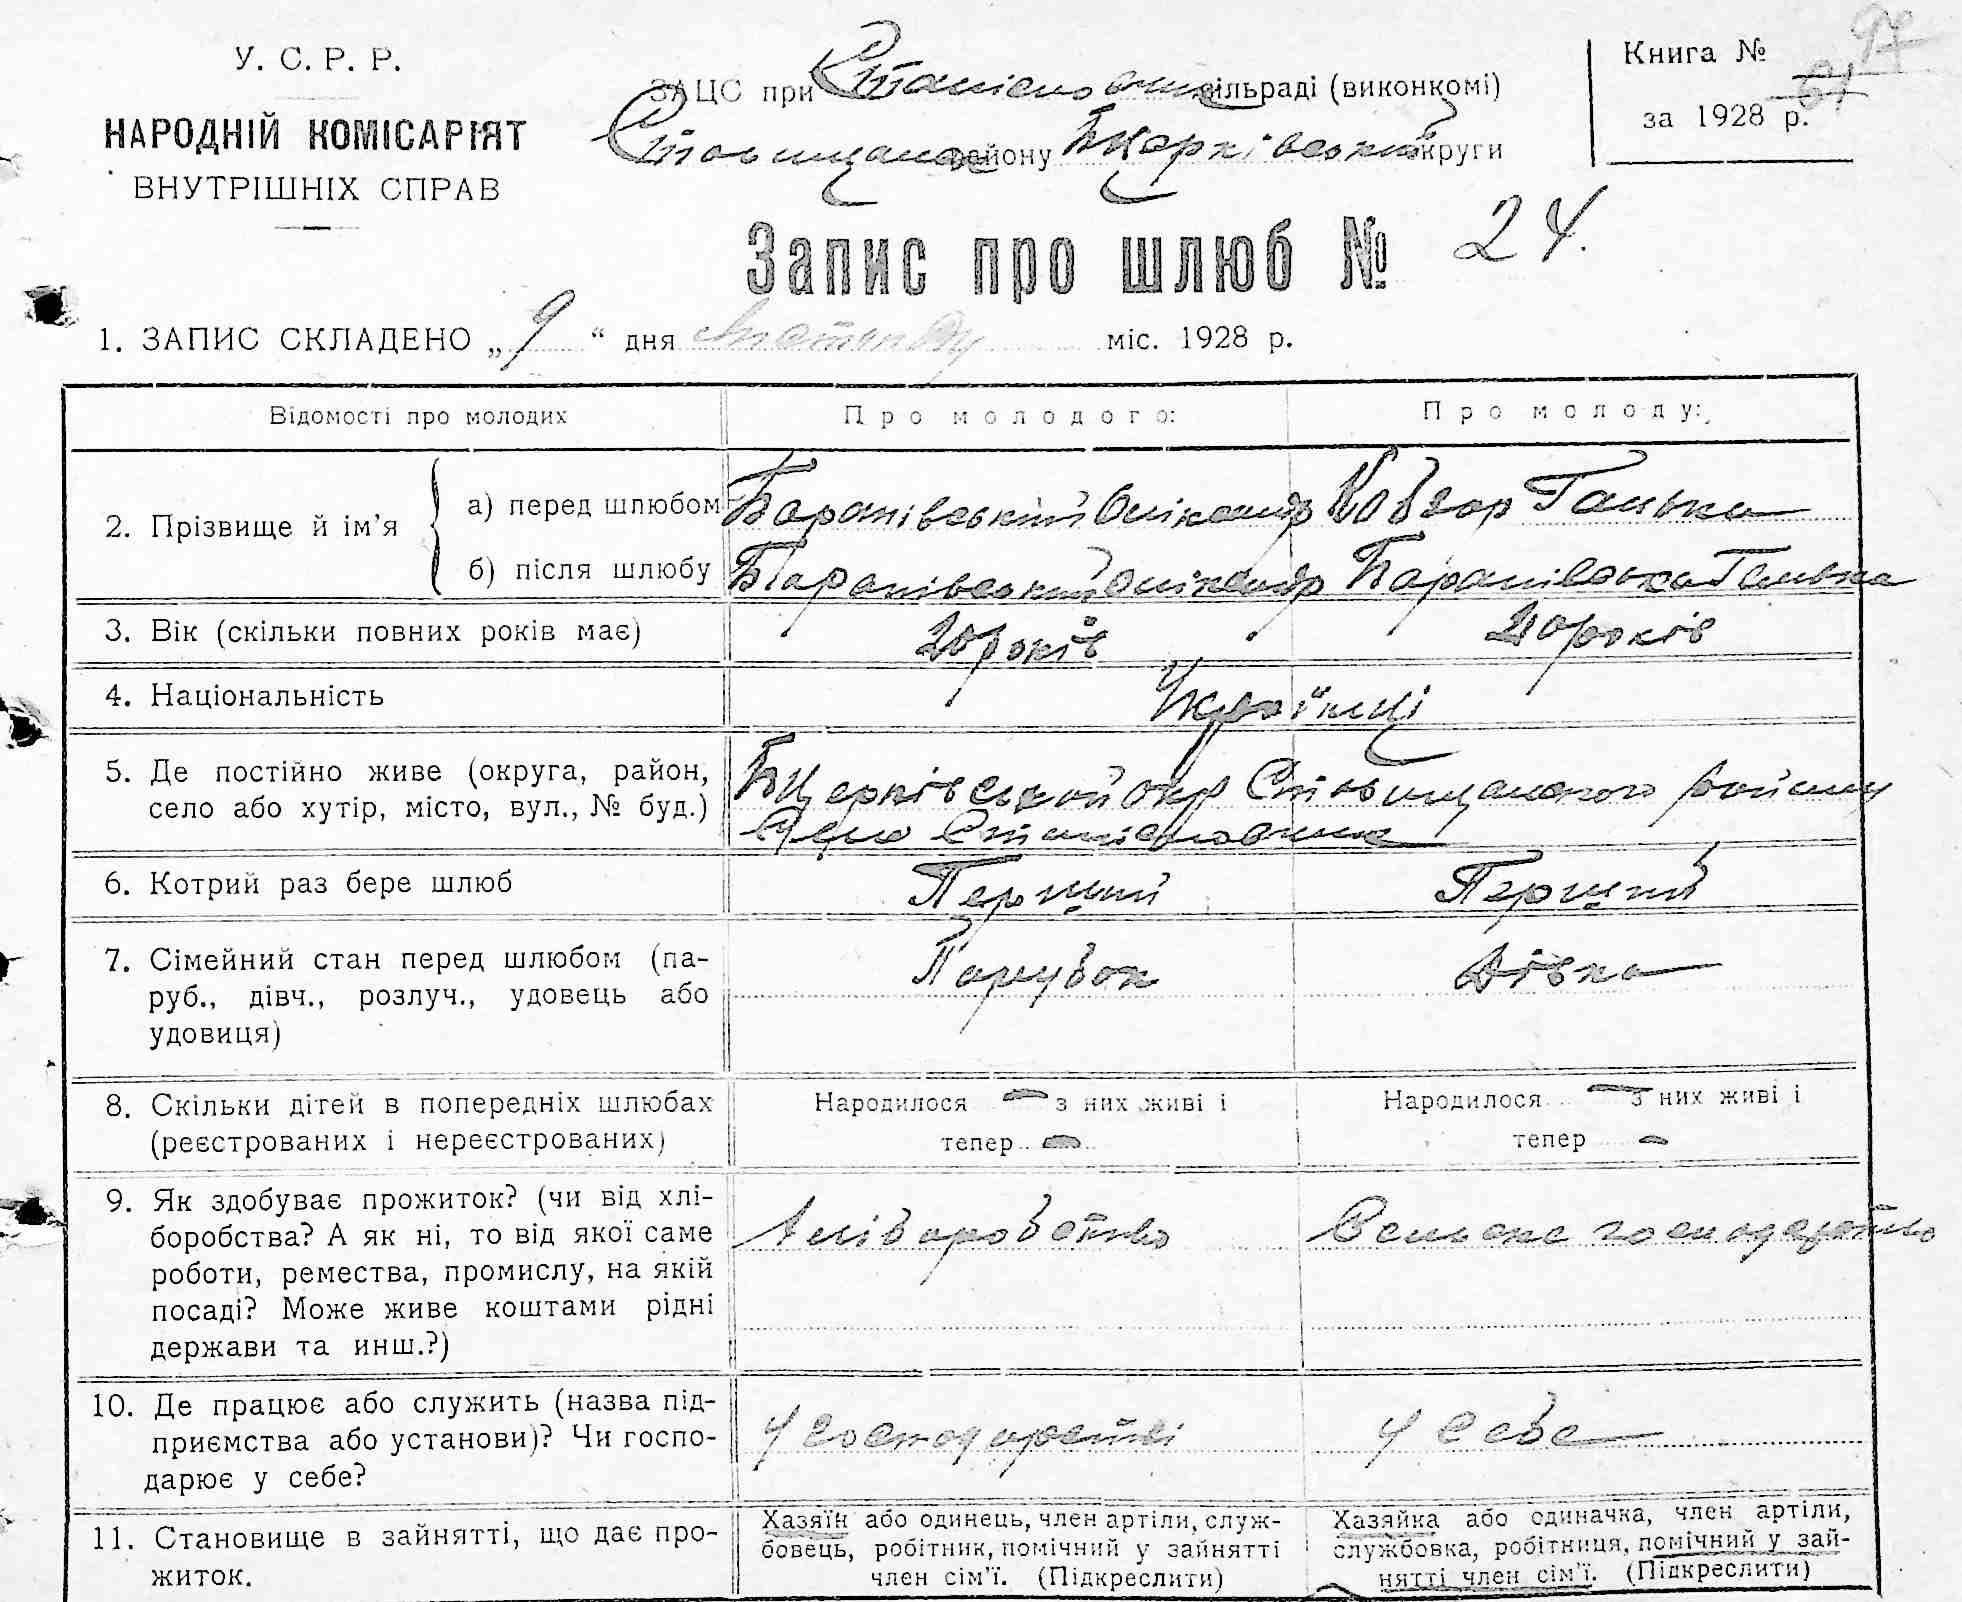 У. С. Р. Р.
НАРОДНІЙ КОМІСАРІЯТ
ВНУТРІШНІХ СПРАВ
ЗАЦС при сільраді (виконкомі)
району БЦерківської округи
Книга №
за 1928 р.
97
61
Запис про шлюб № 24.
1. ЗАПИС СКЛАДЕНО „9“ дня Листопаду міс. 1928 р.
Відомості про молодих
Про молодого:
Про молоду:
2. Прізвище й ім'я
а) перед шлюбом
Баранівський Олександр
Ковгор Ганька
б) після шлюбу
Баранівський Олександр
Баранівська Ганька
3. Вік (скільки повних років має)
20 років
20 років
4. Національність
Українці
5. Де постійно живе (округа, район,
село або хутір, місто, вул., № буд.)
БЦерківської окр Ставищанського району
Село Станіславчик
6. Котрий раз бере шлюб
Перший
Перший
7. Сімейний стан перед шлюбом (па-
руб., дівч., розлуч., удовець або
удовиця)
Парубок
Дівка
8. Скільки дітей в попередніх шлюбах
(реєстрованих і нереєстрованих)
Народилося — з них живі і
тепер —
Народилося — з них живі і
тепер —
9. Як здобуває прожиток? (чи від хлі-
боробства? А як ні, то від якої саме
роботи, ремества, промислу, на якій
посаді? Може живе коштами рідні
держави та инш.?)
Хліборобство
Сельске господарство
10. Де працює або служить (назва під-
приємства або установи)? Чи госпо-
дарює у себе?
У господарстві
У себе
11. Становище в зайнятті, що дає про-
житок.
Хазяїн або одинець, член артіли, служ-
бовець, робітник, помічний у зайнятті
член сім'ї. (Підкреслити)
Хазяйка або одиначка, член артіли,
службовка, робітниця, помічний у зай-
нятті член сім'ї. (Підкреслити)